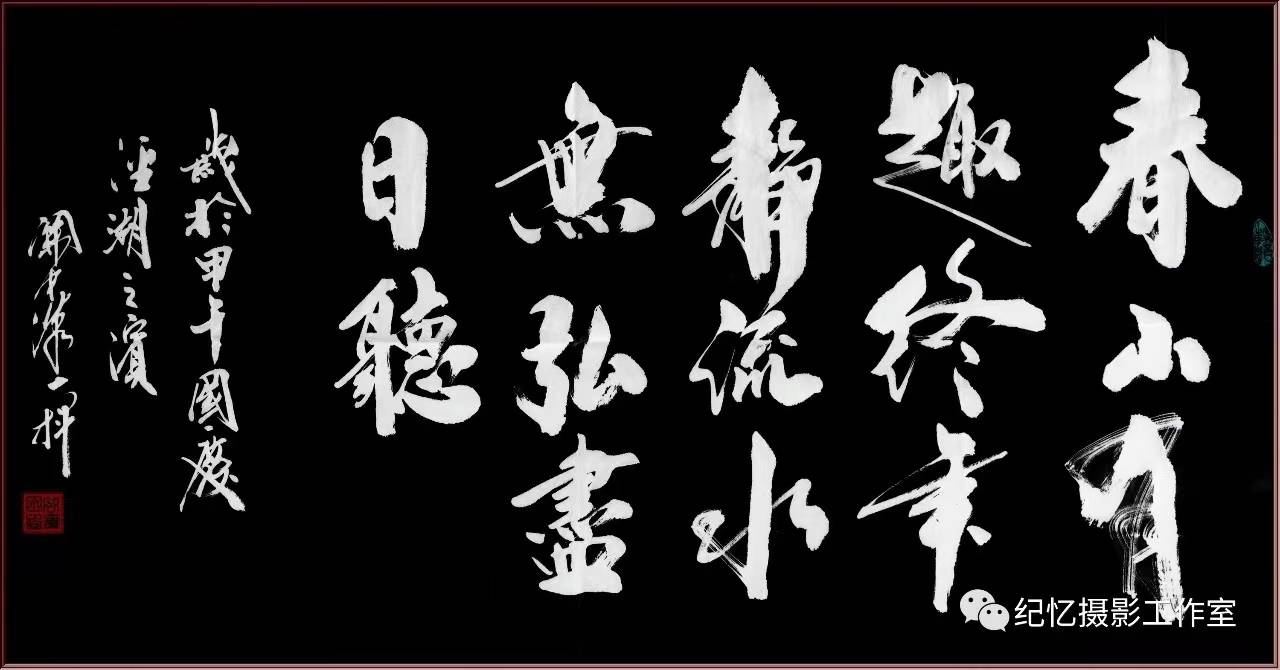 春山有
趣終年
靜流水
無弦盡
日聽
歲於甲午國慶
湖之濱
纪忆摄影工作室